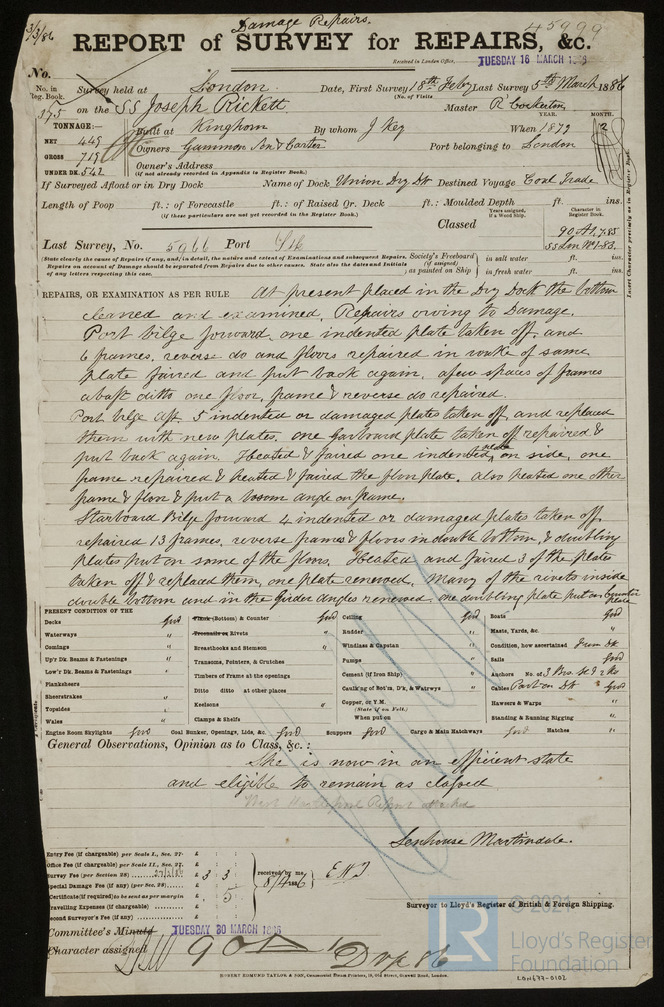 3/3/86
Damage Repairs.
45999
REPORT of SURVEY for REPAIRS, &c.
Received in London Office, TUESDAY 16 MARCH 1886
No.
No. in Reg. Book. Survey held at London. Date, First Survey 18th Feby Last Survey 5th March 1886
(No. of Visits
175 on the SS Joseph Rickett. Master R. Cockerton
TONNAGE:— Built at Kinghorn By whom J Key When 1879 YEAR. MONTH. 2
NET 445 Owners Gammon Son & Carter Port belonging to London
GROSS 719 Owner's Address
UNDER DK. 542 (if not already recorded in Appendix to Register Book.)
If Surveyed Afloat or in Dry Dock Name of Dock Union Dry Dk Destined Voyage Coal Trade
Length of Poop ft.: of Forecastle ft.: of Raised Qr. Deck ft.: Moulded Depth ft. ins.
(if these particulars are not yet recorded in the Register Book.)
Years assigned, if a Wood Ship. Character in Register Book.
Classed 90 A1. 7.85
SS Lon No 1-83.
Last Survey, No. 5966 Port
(State clearly the cause of Repairs if any, and, in detail, the nature and extent of Examinations and subsequent Repairs. Society's Freeboard in salt water ft. ins.
Repairs on account of Damage should be separated from Repairs due to other causes. State also the dates and Initials (if assigned)
of any letters respecting this case. as painted on Ship in fresh water ft. ins.
Insert Character precisely as in Register Book.
REPAIRS, OR EXAMINATION AS PER RULE At present placed in the Dry Dock the bottom
cleaned and examined. Repairs owing to Damage.
Port bilge forward, one indented plate taken off, and
6 frames, reverse do and floors repaired in wake of same
plate faired and put back again, a few spaces of frames
abaft ditto one floor, frame & reverse do repaired.
Port bilge aft. 5 indented or damaged plates taken off and replaced
them with new plates, one Garboard plate taken off repaired &
put back again. Heated & faired one indented plate on side, one
frame repaired & heated & faired the floor plate. Also heated one other
frame & floor & put a bosom angle on frame.
Starboard Bilge forward 4 indented or damaged plates taken off,
repaired 13 frames, reverse frames & floors in double bottom, & doubling
plates put on some of the floors. Heated and faired 3 of the plates
taken off & replaced them, one plate renewed. Many of the rivets inside
double bottom and in the Girder angles renewed. one doubling plate put on Counter plate
PRESENT CONDITION OF THE
Decks Good
Waterways "
Comings "
Up'r Dk. Beams & Fastenings "
Low'r Dk. Beams & Fastenings "
Planksheers
Sheerstrakes "
Topsides "
Wales "
Plank (Bottom) & Counter Good
Treenails or Rivets "
Breasthooks and Stemson "
Transoms, Pointers, & Crutches
Timbers of Frame at the openings
Ditto ditto at other places
Keelsons "
Clamps & Shelfs
Ceiling Good
Rudder "
Windlass & Capstan "
Pumps "
Cement (if Iron Ship) "
Caulk'ng of Bot'm, D'k, & Watrwys "
Copper, or Y.M.
(State if on Felt.)
When put on
Boats Good
Masts, Yards, &c. "
Condition, how ascertained from Dk
Sails Good
Anchors No. of 3 Brs. st & 2 Ks
Cables Part on Dk Good
Hawsers & Warps "
Standing & Running Rigging "
Engine Room Skylights Good Coal Bunker, Openings, Lids, &c. Good Scuppers Good Cargo & Main Hatchways Good Hatches "
General Observations, Opinion as to Class, &c. :
She is now in an efficient state
and eligible to remain as classed
West Hartlepool Report attached
Senhouse Martindale.
Surveyor to Lloyd's Register of British & Foreign Shipping.
Entry Fee (if chargeable) per Scale I., Sec. 27. £
Office Fee (if chargeable) per Scale II., Sec. 27. £
Survey Fee (per Section 28) £ 3 : 3
Special Damage Fee (if any) (per Sec. 28) £
Certificate (if required) to be sent as per margin £ : 5
Travelling Expenses (if chargeable) £
Second Surveyor's Fee (if any) £
received by me, 8/4 1886
Committee's Minute TUESDAY 30 MARCH 1886
Character assigned 90 A 1
ROBERT EDMUND TAYLOR & SON, Commercial Steam Printers, 19, Old Street, Goswell Road, London.
© 2021
LR
Lloyd's Register
Foundation
LON677-0102